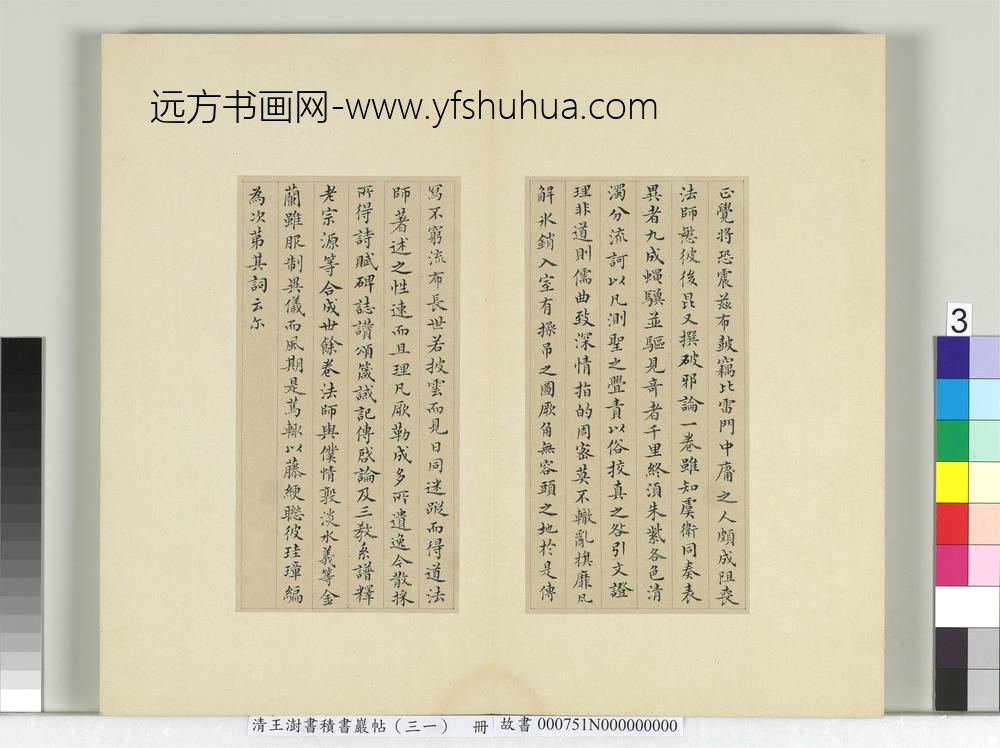 远方书画网-www.yfshuhua.com
正覺將恐震茲布鼓竊比雷門中庸之人頗成阻喪
法師愍彼後昆又撰破邪論一卷雖知虞衛同奏表
異者九成蠅驥並驅見奇者千里終湏朱紫各色清
濁分流訶以凡測聖之舋責以俗挍真之咎引文證
理非道則儒曲致深情指的周密莫不轍亂旗靡凡
解氷銷入室有操吊之圖厥角無容頭之地於是傳
寫不窮流布長世若披雲而見日同迷蹤而得道法
師著述之性速而且理凡厥勒成多所遺逸今散採
所得詩賦碑誌讚頌箴誡記傳啟論及三教系譜釋
老宗源等合成卅餘卷法師與僕情敦淡水義等金
蘭雖服制異儀而風期是篤輒以藤綆聯彼珪璋編
為次苐其詞云尓
3
清王澍書積書巖帖（三一） 冊
故書 000751N000000000